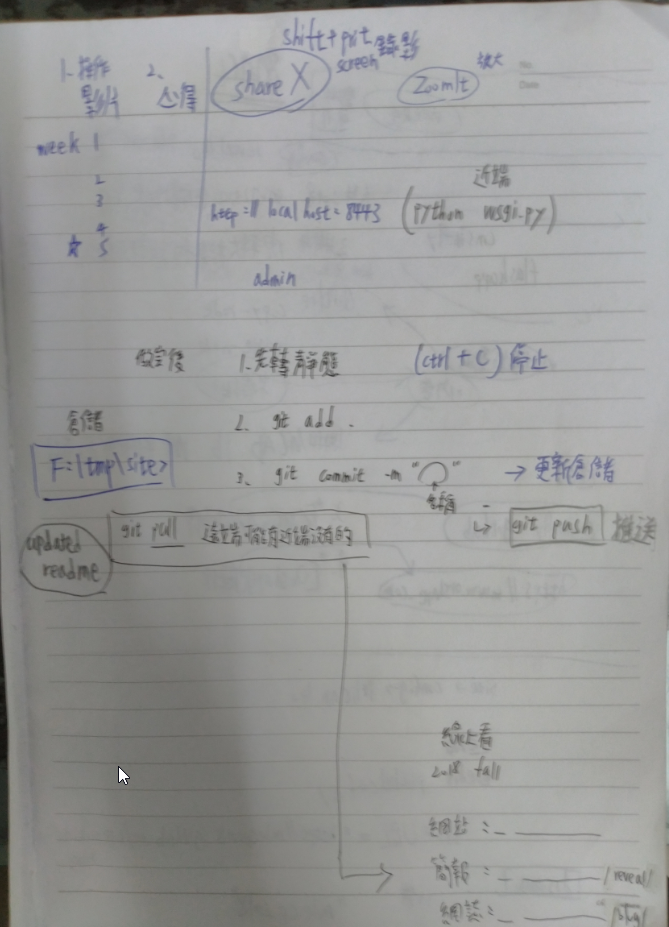 shift + prt 錄影
screen
1. 操作 2.
影片 心得
share X
ZoomIt 放大
week 1
2
3
4
☆ 5
近端
http:// localhost:8443 (python wsgi.py)
admin
做完後 1. 先轉靜態 (ctrl + C) 停止
倉儲 2. git add .
F:\tmp\site>
3. git commit -m "○" → 更新倉儲
↳ git push 推送
updated
readme
git pull 遠端可能有近端沒有的
線上看
2018 fall
網站:_
簡報:_ /reveal/
網誌:_ /blog/